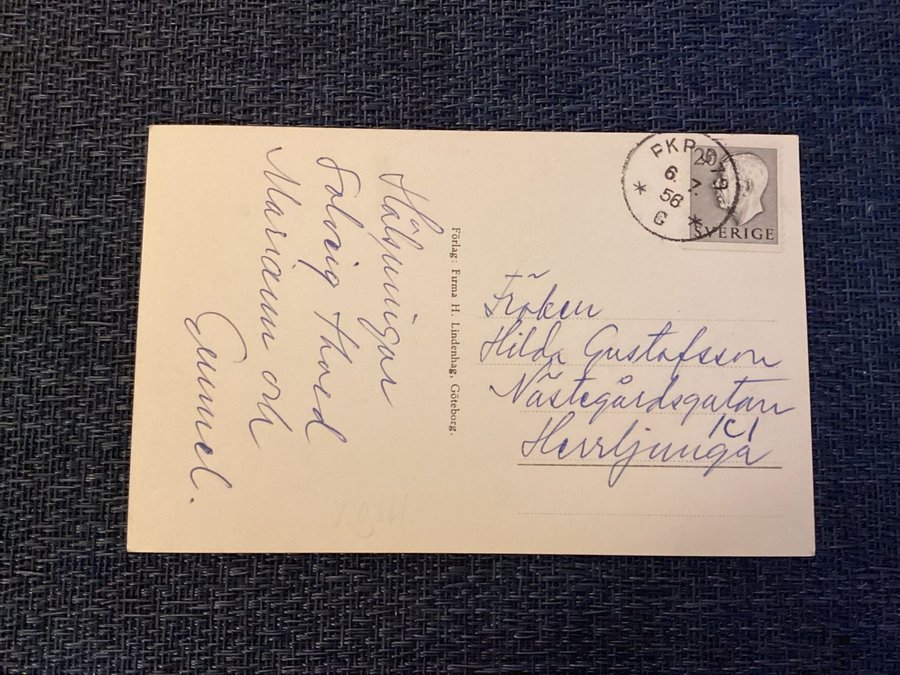 Hälsningar
Solveig Thord
Mariann och
Gunnel.
Förlag: Firma H. Lindenhag, Göteborg.
PKP
6. 7.
56
G
20
SVERIGE
Fröken
Hilda Gustafsson
Nästegårdsgatan
Herrljunga